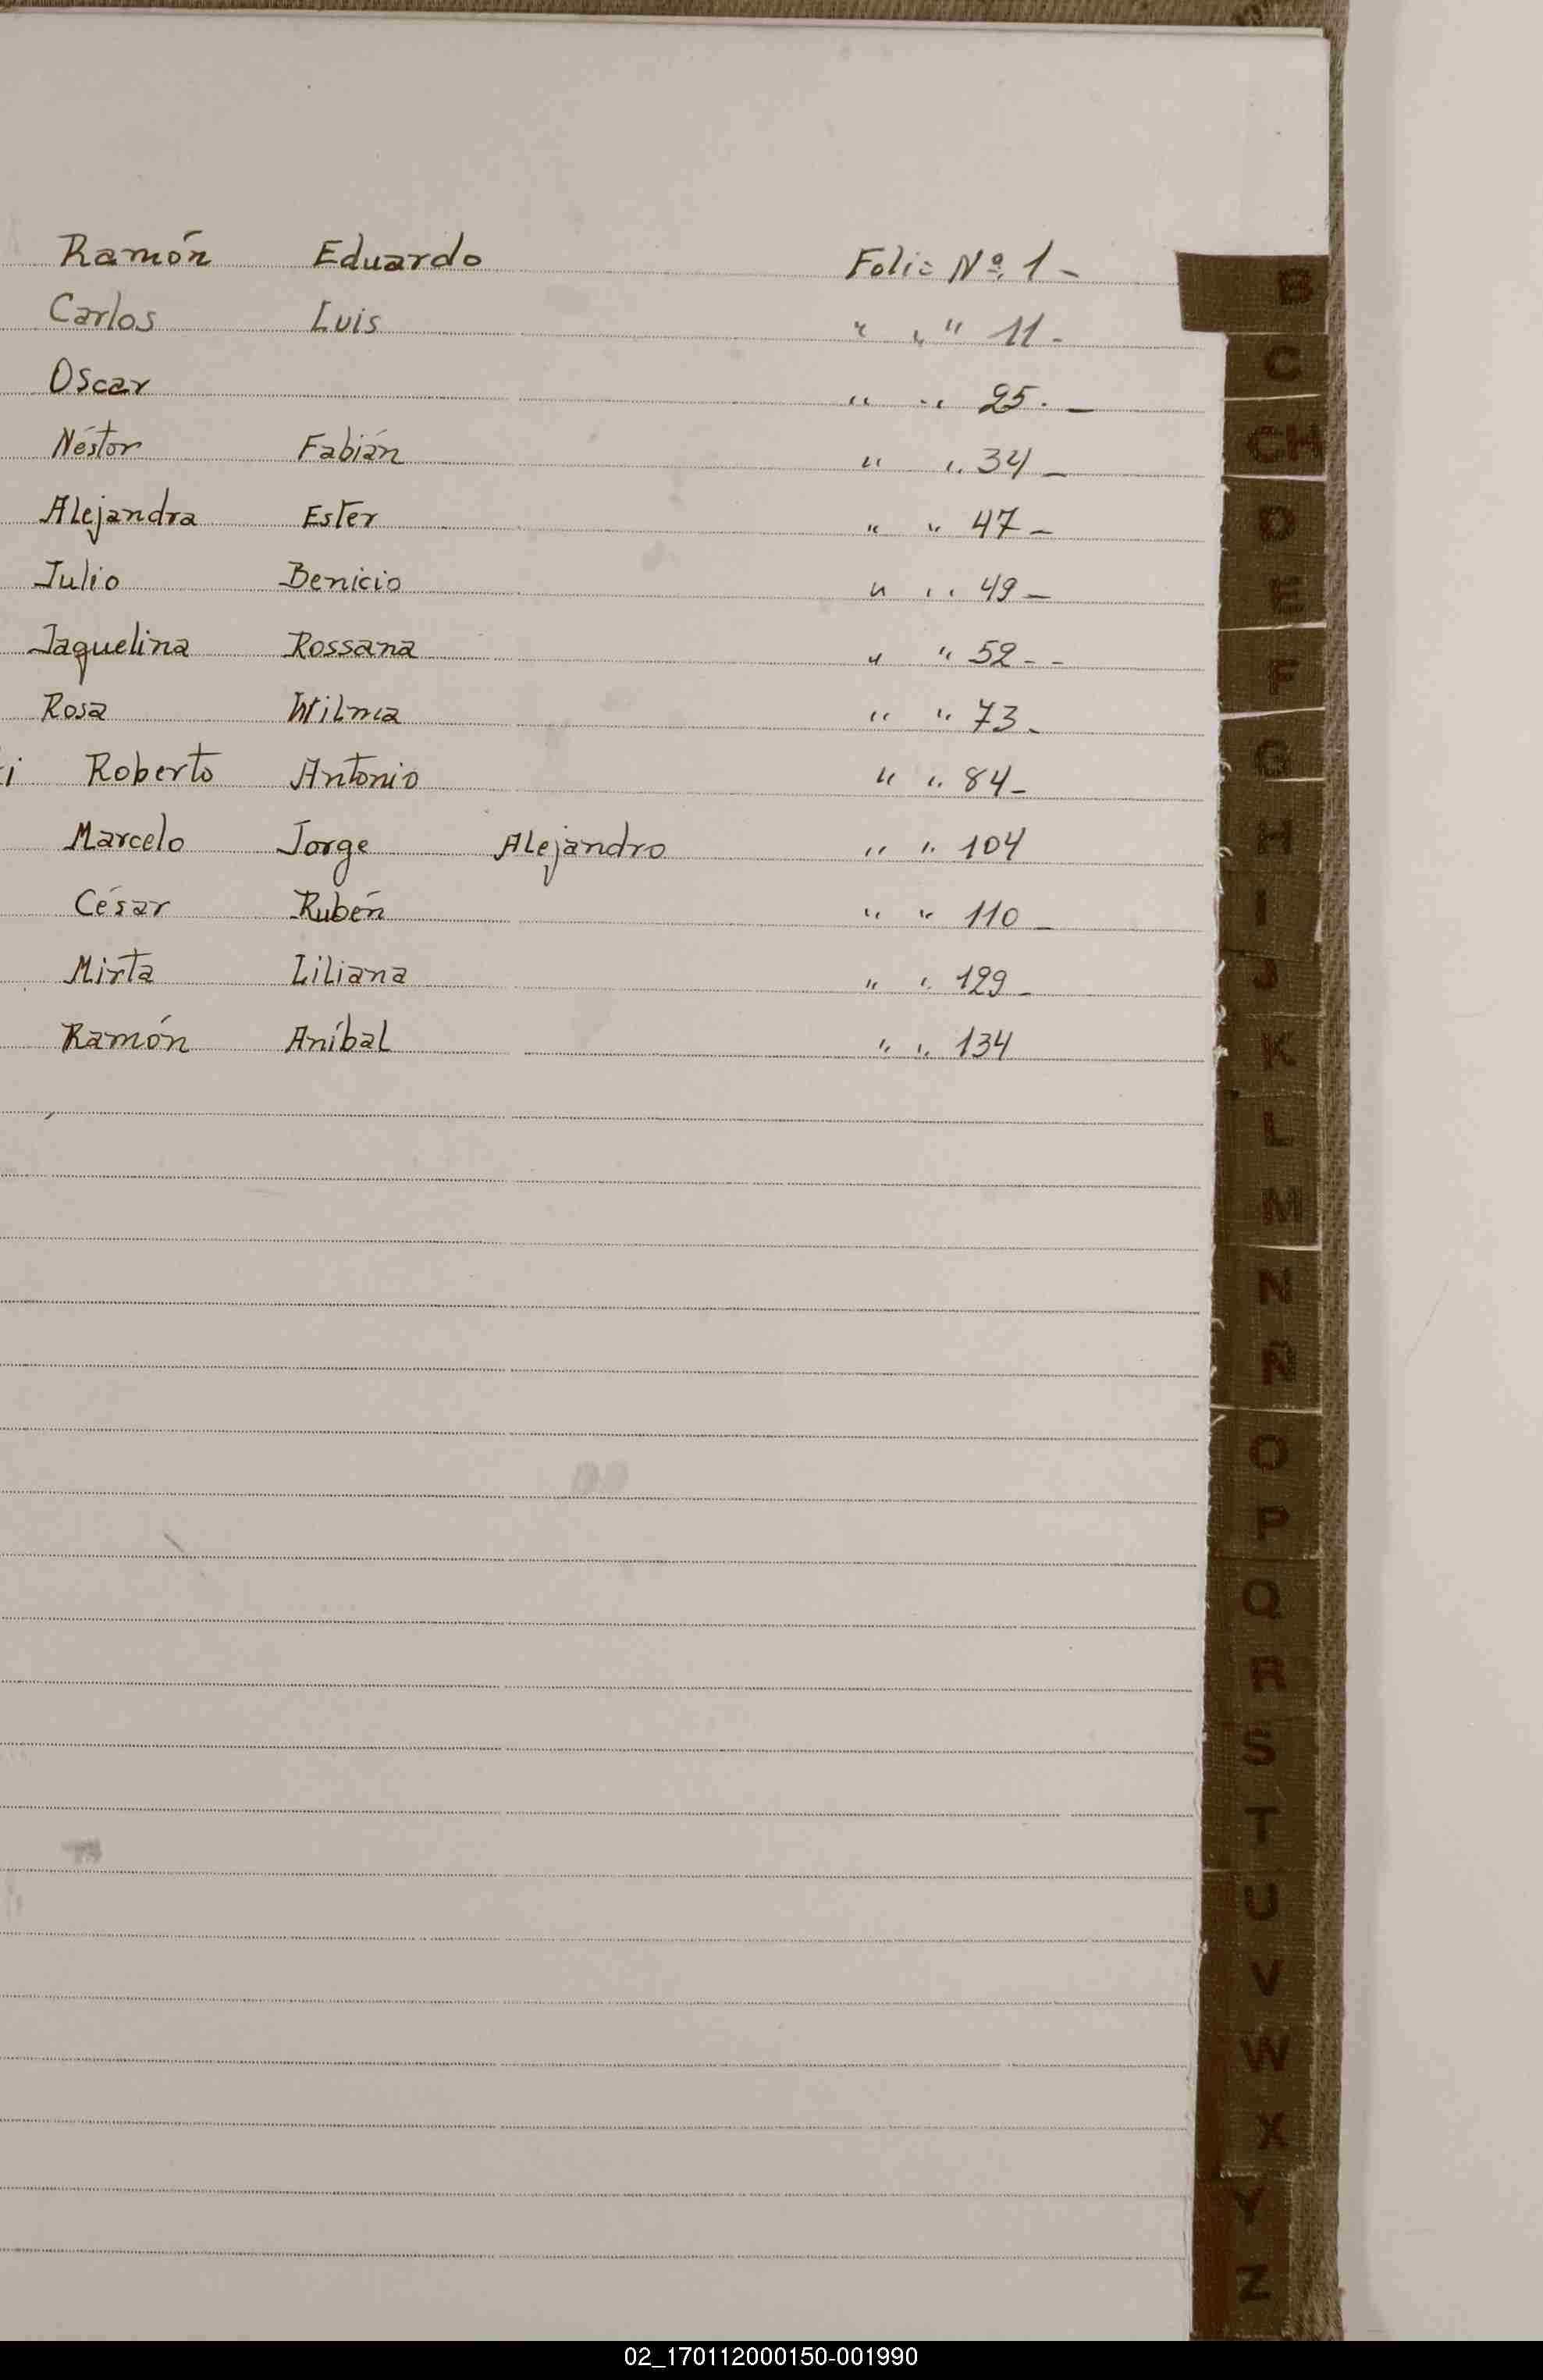 Ramón Eduardo Folio Nº 1 -
Carlos Luis " " " 11 -
Oscar " " 25. -
Néstor Fabián " " 34 -
Alejandra Ester " " 47 -
Julio Benicio " " 49 -
Jaquelina Rossana " " 52 - -
Rosa Wilma " " 73 -
i Roberto Antonio " " 84 -
Marcelo Jorge Alejandro " " 104
César Rubén " " 110 -
Mirta Liliana " " 129 -
Ramón Aníbal " " 134
B
C
CH
D
E
F
G
H
I
J
K
L
M
N
Ñ
O
P
Q
R
S
T
U
V
W
X
Y
Z
02_170112000150-001990